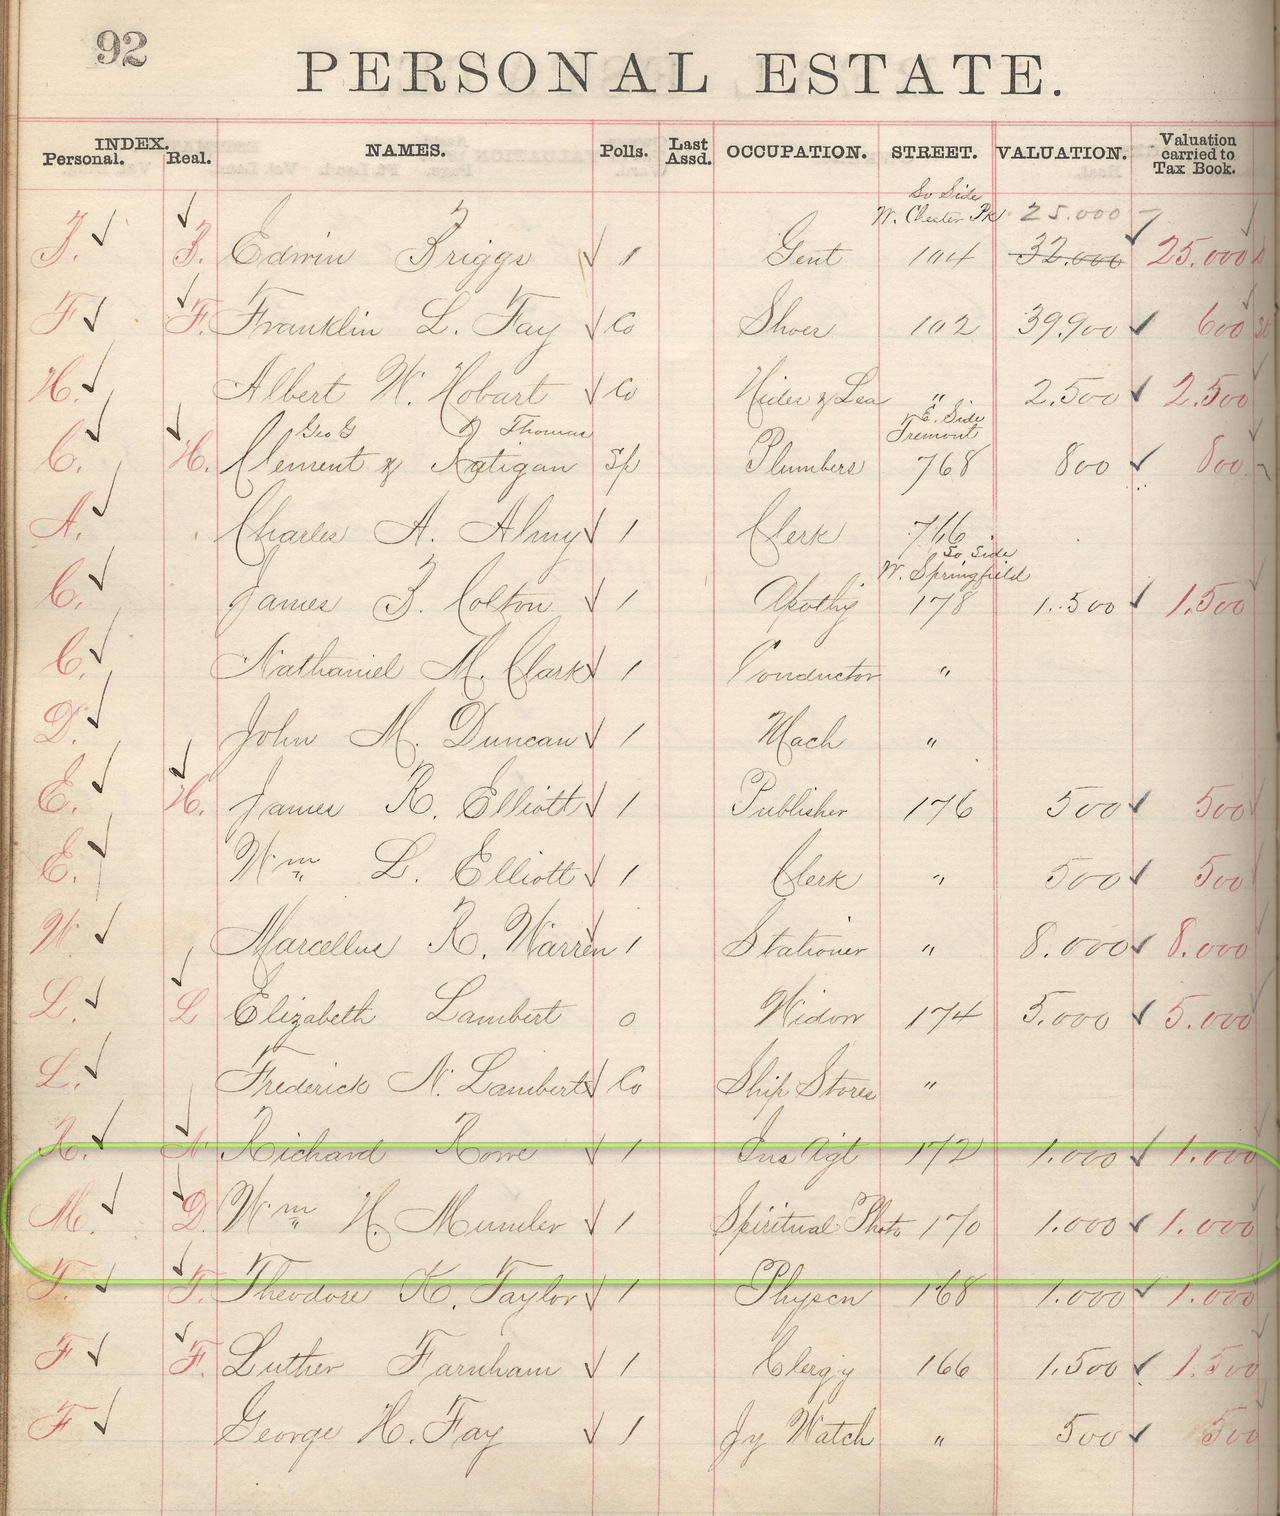 92
PERSONAL ESTATE.
INDEX. Personal. Real. NAMES. Polls. Last Assd. OCCUPATION. STREET. VALUATION. Valuation carried to Tax Book.
So Side
W. Chester Pk 25.000
B. B. Edwin Briggs 1 Gent 104 32.000 25.000
F F. Franklin L. Fay Co Shoes 102 39.900 600
H. Albert W. Hobart Co Hides & Lea " 2.500 2.500
Geo G Thomas E. Side Tremont
C. H. Clement & Ratigan Sp Plumbers 768 800 800
A. Charles A. Almy 1 Clerk 766
So Side
W. Springfield
C. James B. Colton 1 Apothy 178 1.500 1.500
C. Nathaniel M. Clark 1 Conductor "
D. John M. Duncan 1 Mach "
E. H. James R. Elliott 1 Publisher 176 500 500
E. Wm L. Elliott 1 Clerk " 500 500
W Marcellus R. Warren 1 Stationer " 8.000 8.000
L. L Elizabeth Lambert 0 Widow 174 5.000 5.000
L. Frederick N. Lambert Co Ship Stores "
R. N. Richard Rowe 1 Ins Agt 172 1.000 1.000
M. D. Wm H. Mumler 1 Spiritual Photo 170 1.000 1.000
T. T. Theodore K. Taylor 1 Physcn 168 1.000 1.000
F F. Luther Farnham 1 Clergy 166 1.500 1.500
F George H. Fay 1 Jy Watch " 500 500